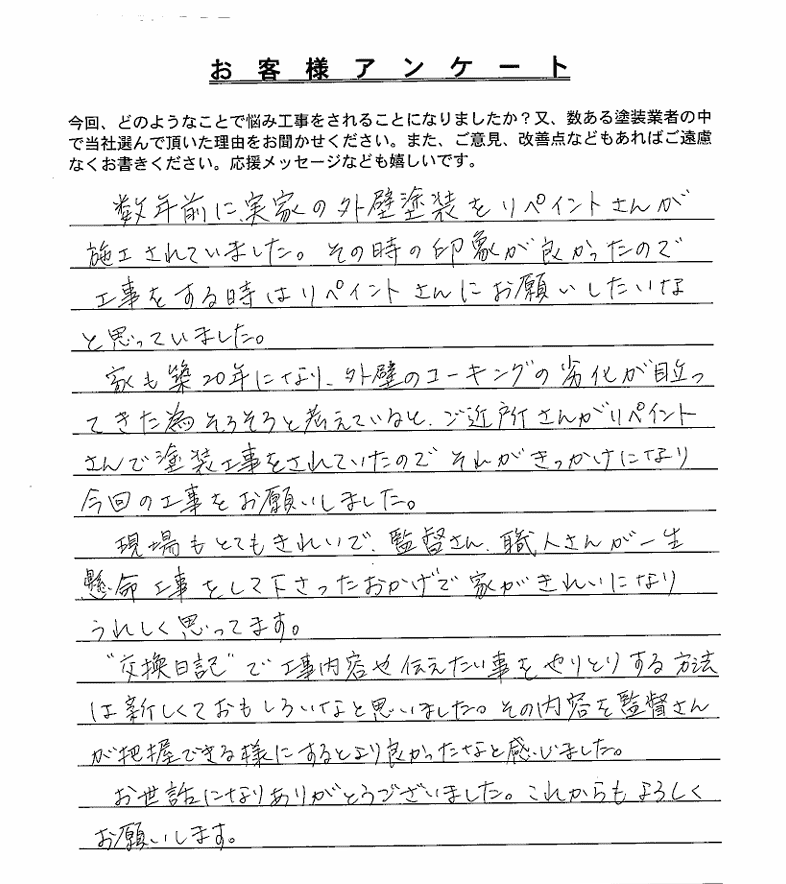 お客様アンケート
今回、どのようなことで悩み工事をされることになりましたか？又、数ある塗装業者の中
で当社選んで頂いた理由をお聞かせください。また、ご意見、改善点などもあればご遠慮
なくお書きください。応援メッセージなども嬉しいです。
数年前に、実家の外壁塗装をリペイントさんが
施工されていました。その時の印象が良かったので
工事をする時はリペイントさんにお願いしたいな
と思っていました。
家も築20年になり、外壁のコーキングの劣化が目立っ
てきた為そろそろと考えていると、ご近所さんがリペイント
さんで塗装工事をされていたのでそれがきっかけになり
今回の工事をお願いしました。
現場もとてもきれいで、監督さん、職人さんが一生
懸命工事をして下さったおかげで家がきれいになり
うれしく思ってます。
"交換日記"で工事内容や伝えたい事をやりとりする方法
は新しくておもしろいなと思いました。その内容を監督さん
が把握できる様にするとより良かったなと感じました。
お世話になりありがとうございました。これからもよろしく
お願いします。